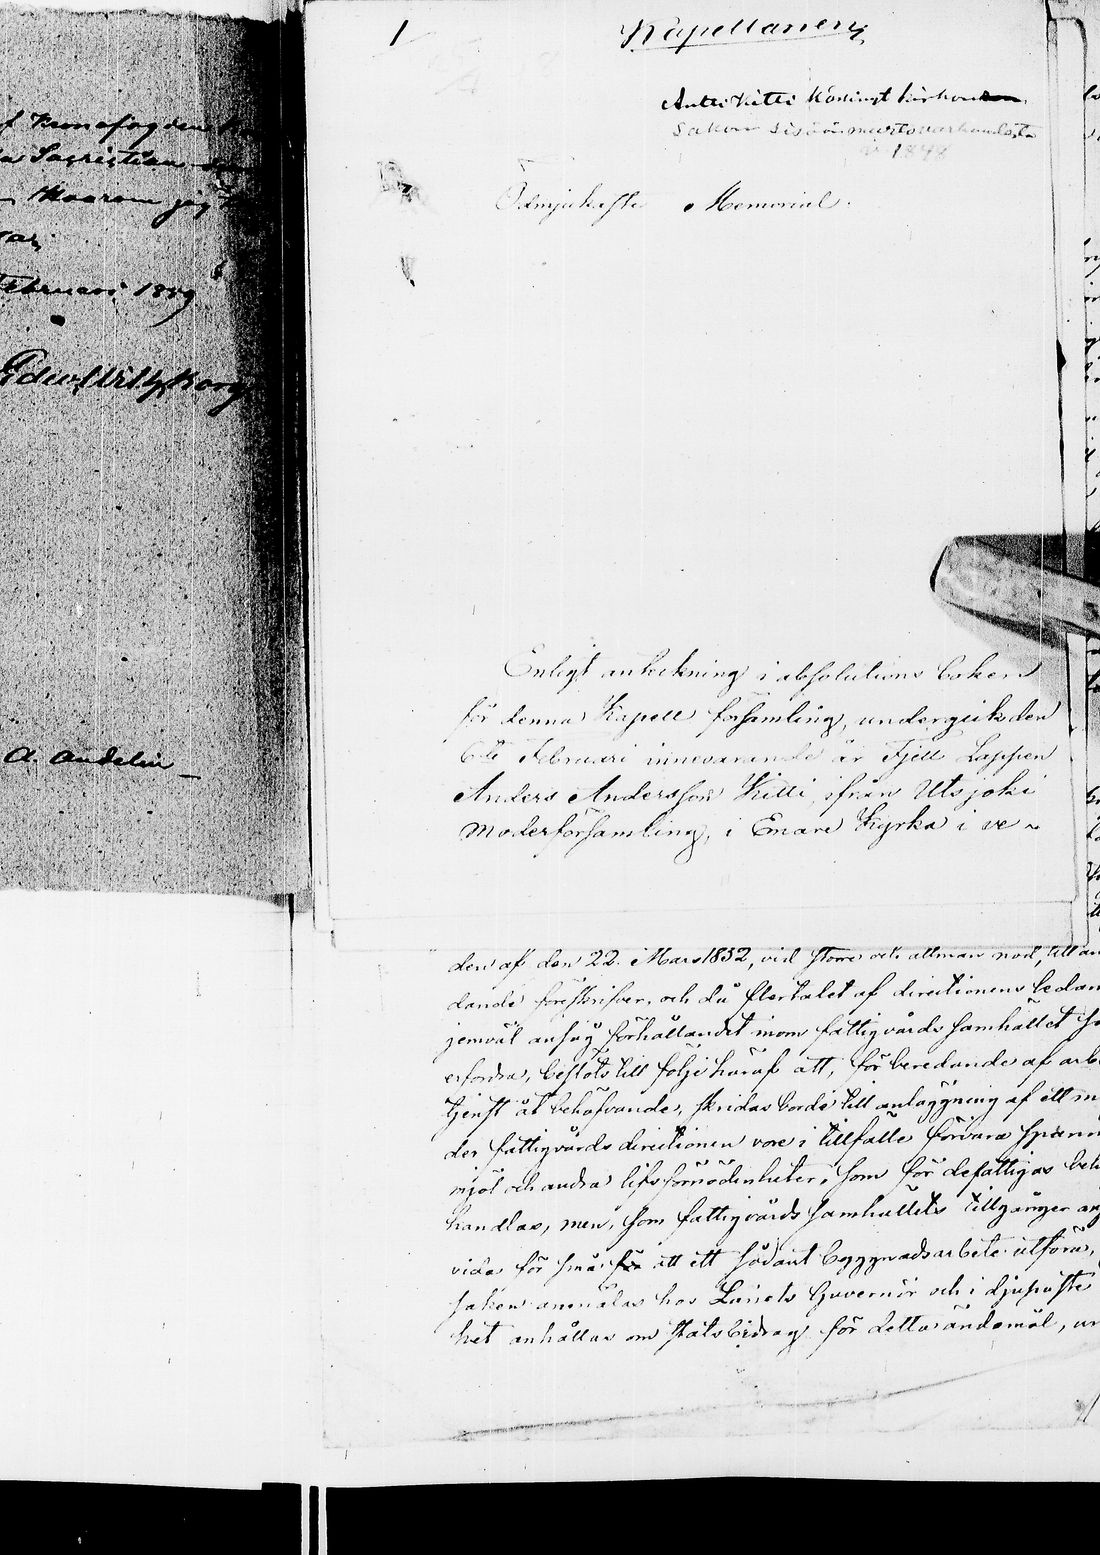 f Kronofogden
a Sacristian
Hvarom jag
Februari 1889
A. Andelin
1
Kapellanen
Antti Kitti
1848
Ödmjukaste Memorial.
Enligt anteckning i absolutions boken
för denna Kapell församling, undergick den
6te Februari innevarande år Fjell Lappen
Anders Andersson Kitti ifrån Utsjoki
moderförsamling, i Enare Kyrka i ve
den af den 22 Mars 1852, vid större och allmän nöd, till an
dande föreskrifver, och då flertalet af directionens ledam
jemväl ansåg förhållandet inom fattigvårds samhället
erfordra, beslöts till följe häraf att, för beredande af arb
tjenst åt behöfvande, skridas borde till anläggning af ett m
der fattigvårds directionen vore i tillfälle förvara spann
mjöl och andra lifsförnödenheter, som för de fattigas beh
handlas, men, som fattigvårds samhällets tillgångar an
vida för små för att ett sådant byggnadsarbete utföra,
saken anmälas hos Länets Guvernör och i djupaste
het anhållas om statsbidrag för detta ändamål, un